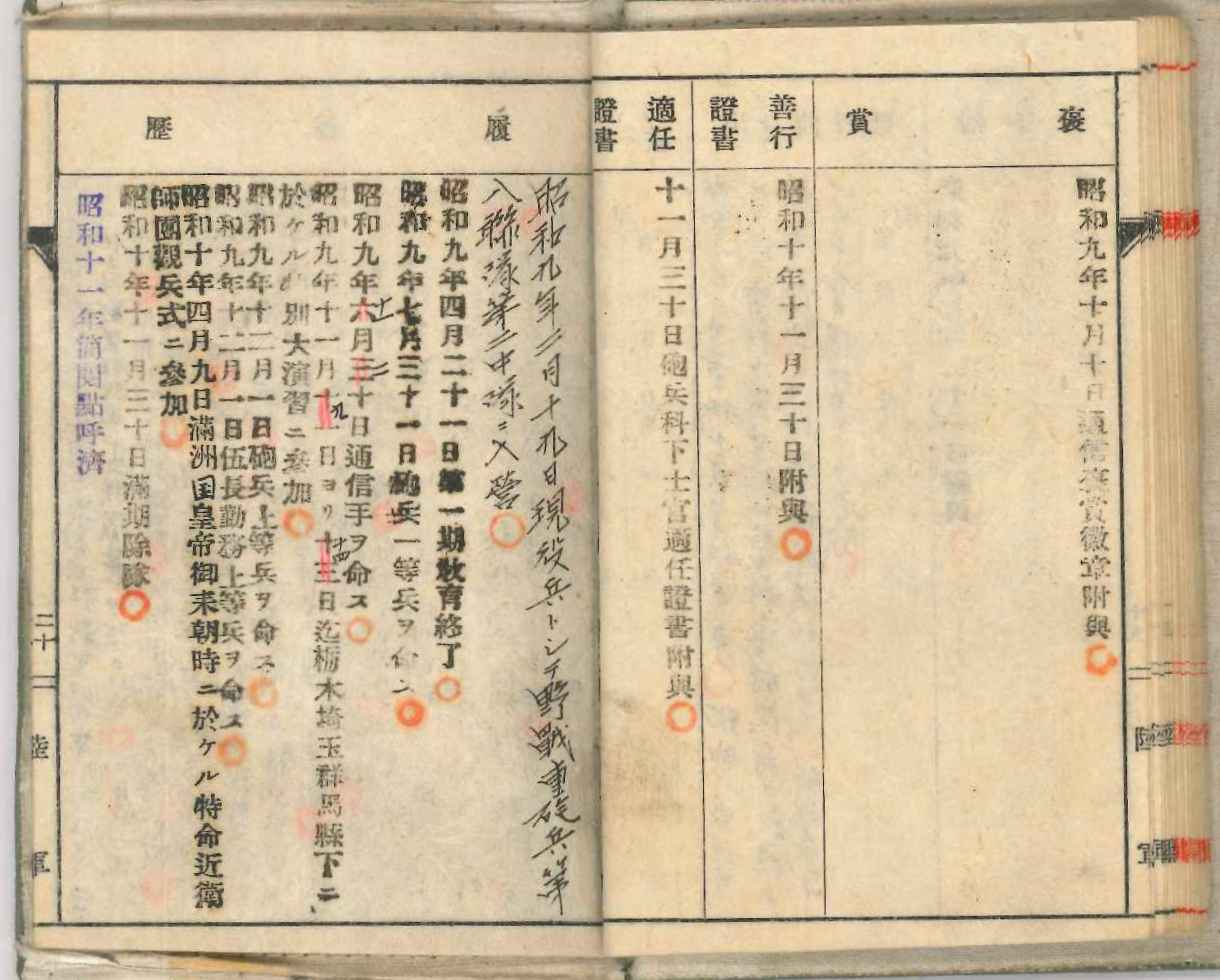 褒賞
昭和九年十月十日通信褒賞徽章附與
善行證書
昭和十年十一月三十日附與
適任證書
十一月三十日砲兵科下士官適任證書附與
履歷
昭和九年二月十九日現役兵トシテ野戰重砲兵第
八聯隊第二中隊ニ入營
昭和九年四月二十一日第一期敎育終了
昭和九年七月三十一日砲兵一等兵ヲ命ス
昭和九年十二月三十日通信手ヲ命ス
昭和九年十一月十九日ヨリ十四日迄栃木埼玉群馬縣下ニ
於ケル特別大演習ニ參加
昭和九年十二月一日砲兵上等兵ヲ命ス
昭和九年十二月一日伍長勤務上等兵ヲ命ス
昭和十年四月九日滿洲国皇帝御来朝時ニ於ケル特命近衛
師團觀兵式ニ參加
昭和十年十一月三十日滿期除隊
昭和十一年簡閱點呼濟
二十一
陸軍